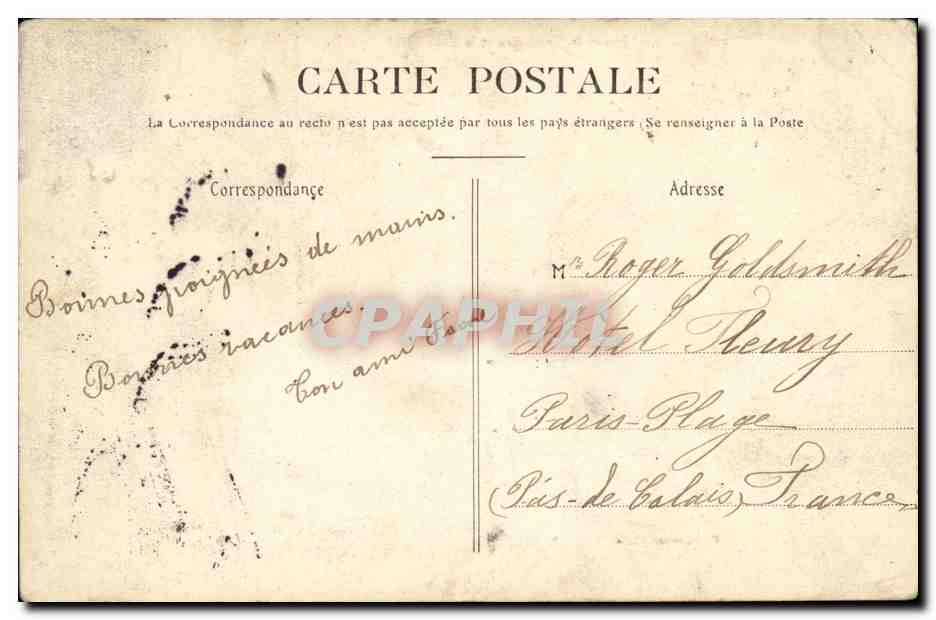 CARTE POSTALE
La Correspondance au recto n'est pas acceptée par tous les pays étrangers (Se renseigner à la Poste
Correspondance
Bonnes poignées de mains.
Bonnes vacances.
Ton ami
Adresse
Mr. Roger Goldsmith
Hotel Fleury
Paris-Plage
(Pas-de Calais) France
CPAPHIL